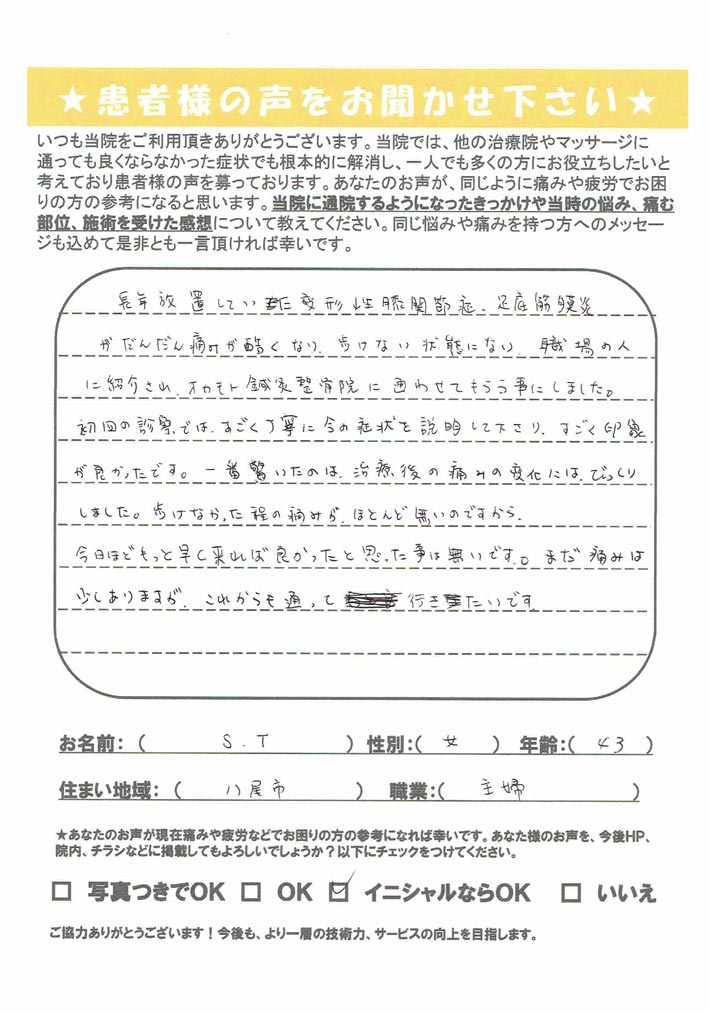 ★患者様の声をお聞かせ下さい★
いつも当院をご利用頂きありがとうございます。当院では、他の治療院やマッサージに
通っても良くならなかった症状でも根本的に解消し、一人でも多くの方にお役立ちしたいと
考えており患者様の声を募っております。あなたのお声が、同じように痛みや疲労でお困
りの方の参考になると思います。当院に通院するようになったきっかけや当時の悩み、痛む
部位、施術を受けた感想について教えてください。同じ悩みや痛みを持つ方へのメッセー
ジも込めて是非とも一言頂ければ幸いです。
長年放置していた変形性膝関節症、足底筋膜炎
がだんだん痛みが酷くなり、歩けない状態になり、職場の人
に紹介され、オカモト鍼灸整骨院に通わせてもらう事にしました。
初回の診察では、すごく丁寧に今の症状を説明して下さり、すごく印象
が良かったです。一番驚いたのは、治療後の痛みの変化には、びっくり
しました。歩けなかった程の痛みが、ほとんど無いのですから、
今日ほどもっと早く来れば良かったと思った事は無いです。まだ痛みは
少しありますが、これからも通って行きたいです
お名前：（ S.T ） 性別：（ 女 ） 年齢：（ 43 ）
住まい地域：（ 八尾市 ） 職業：（ 主婦 ）
★あなたのお声が現在痛みや疲労などでお困りの方の参考になれば幸いです。あなた様のお声を、今後HP、
院内、チラシなどに掲載してもよろしいでしょうか？以下にチェックをつけてください。
□ 写真つきでOK □ OK ☑ イニシャルならOK □ いいえ
ご協力ありがとうございます！今後も、より一層の技術力、サービスの向上を目指します。